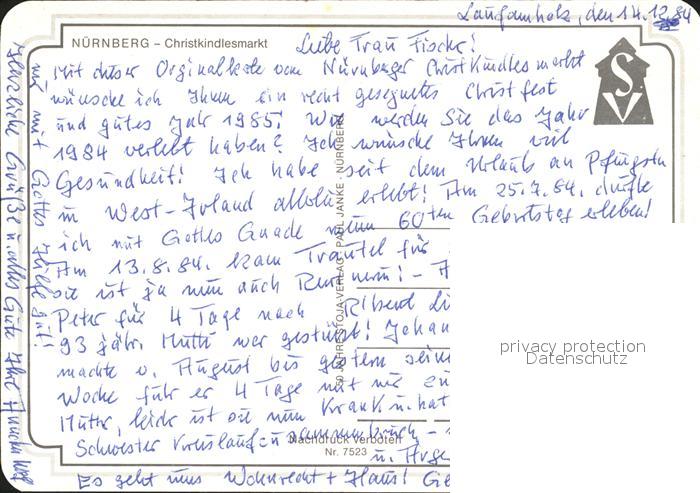 Laufamholz, den 14.12.84
NÜRNBERG – Christkindlesmarkt
Liebe Frau Fischer!
Mit dieser Orginalkarte vom Nürnberger Christkindlesmarkt
wünsche ich Ihnen ein recht gesegnetes Christfest
und gutes Jahr 1985! Wie werden Sie das Jahr
1984 verlebt haben? Ich wünsche Ihnen viel
Gesundheit! Ich habe seit dem Urlaub an Pfingsten
in West-Irland allerlei erlebt! Am 25.7.84. durfte
ich mit Gottes Gnade meinen 60ten Geburtstag erleben!
Am 13.8.84. kam Trautel für
sie ist ja nun auch Rentnerin! –
Peter für 4 Tage nach
93 jähr. Mutti war gestürzt!
machte v. August bis gestern seine
Woche fuhr er 4 Tage mit mir zu
Mutter, leider ist sie nun krank u. hat
Schwester Kreislaufzusammenbruch –
u.
Es geht ums Wohnrecht + Haus!
nur mit Gottes Hilfe gut!
Herzliche Grüße u. alles Gute Ihre
S V
SOJAHRESTOJA-VERLAG PAUL JANKE NÜRNBERG
Nachdruck verboten
Nr. 7523
privacy protection
Datenschutz